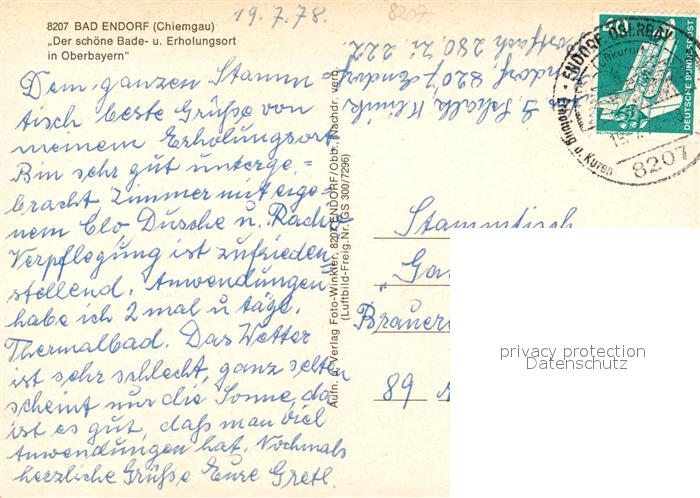 8207 BAD ENDORF (Chiemgau)
„Der schöne Bade- u. Erholungsort
in Oberbayern"
19.7.78.
8207
Dem ganzen Stamm=
tisch beste Grüße von
meinem Erholungsort
Bin sehr gut unterge=
bracht Zimmer mit eige=
nem Clo Dusche u. Radio
Verpflegung ist zufrieden=
stellend. Anwendungen
habe ich 2 mal u tägl.
Thermalbad. Das Wetter
ist sehr schlecht, ganz selten
scheint nur die Sonne, da
ist es gut, daß man viel
Anwendungen hat. Nochmals
herzliche Grüße Eure Gretl.
Klinik
8207 Endorf
Postfach 280. Zi. 222.
Aufn. u. Verlag Foto-Winkler, 8207 ENDORF/Obb., Nachdr. verb.
(Luftbild-Freig. Nr. GS 300/7296)
70
DEUTSCHE BUNDESPOST
ENDORF, OBERBAY
Erholung u. Kuren
8207
Stammtisch
„Ga
Brauer
89 A
privacy protection
Datenschutz